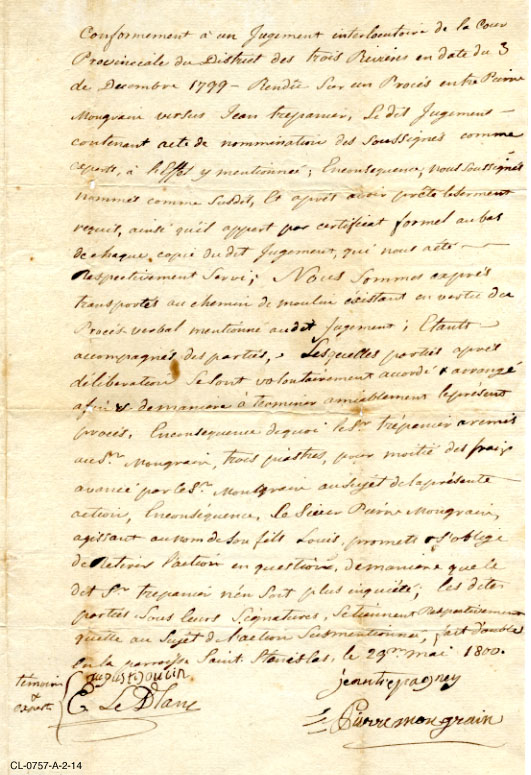 Conformement à un Jugement interlocutoire de la Cour
Provinciale du District des trois Rivieres en date du 3
de Decembre 1799 - Rendée Sur un Procés entre Pierre
Mongrain versus Jean trepanier, Le dit Jugement -
contenant acte de nommination des Soussignés comme
experts, à l'effet y mentionnée; Enconsequence, nous soussignés
nommés comme Susdit, Et aprét avoir prête le serment
requit, ainsi qu'il appert par certificat formel au bas
de chaque copie du dit Jugement, qui nout a été
Respectivement Servi; Nous Sommes exprés
transportés au chemin de moulin éxistant en vertu du
Procés-verbal mentionné au dit Jugement; Etant
accompagnés des parties, Lesquelles parties aprét
déliberation Se sont volontairement accordé & arrangé
afin & de maniere à terminer amiablement le présent
procés, Enconsequence de quoi le Sr. trépanier a remit
au Sr. Mongrain, trois piastres, pour moitié des fraix
avancé par le Sr. Montgrain au Sujet de la présente
action, Enconsequence, Le Sieur Pierre Mongrain,
agissant au nom de Son fils Louis, promets & s'oblige
de Retirer l'action en questions, de maniere que le
dit Sr. trepanier n'en Soit plus inquiété; les dites
parties Sous leurs Signatures, Se tiennent Respectivement
quitte au Sujet de l'action Susmentionnée, fait double
en la parroisse Saint Stanislas, le 29me mai 1800.
temoins & experts
august Joubin
C. Le Blanc
jean trepagney
Pierre mongrain
CL-0757-A-2-14